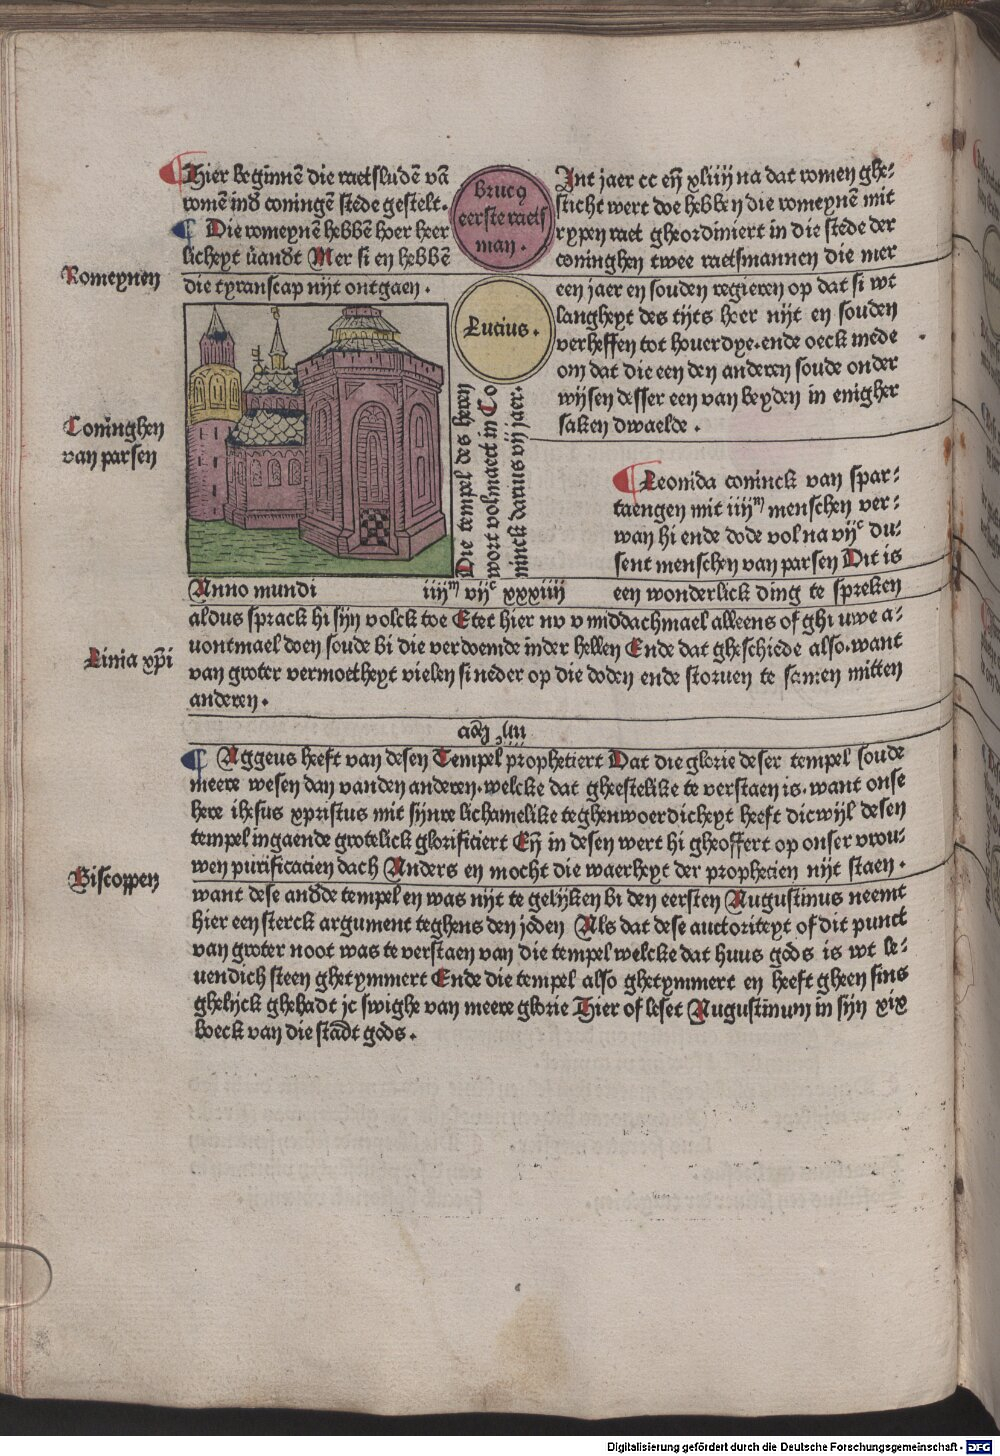 Hier beginnē die raetsludē vā
romē ind coningē stede gestelt.
Die romeynē hebbē hoer heer
licheyt vādt Mer si en hebbē
die tyranscap nijt ontgaen.
Brucꝰ
eerste raets
man.
Lucius.
Int jaer cc eñ xliiij na dat romen ghe-
sticht wert doe hebben die romeynē mit
rypen raet gheordiniert in die stede der
coninghen twee raetsmannen die mer
een jaer en souden regieren op dat si wt
langheyt des tijts hoer nijt en souden
verheffen tot houerdye. ende oeck mede
om dat die een den anderen soude onder
wijsen desser een van beyden in enigher
saken dwaelde.
Romeynen
Coninghen
van parsen
Die tempel des heren
wort volmaect in Co
ninck darius vij jaer.
Leonida coninck van spar-
taengen mit iiijᵐ menschen ver-
wan hi ende dode vol na vijᶜ du-
sent menschen van parsen Dit is
een wonderlick ding te spreken
Anno mundi iiijᵐ vijᶜ xxxiiij
Linia xp̄i
aldus sprack hi sijn volck toe Etet hier nv v middachmael alleens of ghi uwe a-
uontmael doen soude bi die verdoemde in der hellen Ende dat gheschiede also. want
van groter vermoetheyt vielen si neder op die doden ende storuen te samen mitten
anderen.
Aggeus heeft van desen Tempel prophetiert Dat die glorie deser tempel soude
meere wesen dan vanden anderen. welcke dat gheestelike te verstaen is. want onse
here ihesus xpristus mit sijnre lichamelike teghenwoerdicheyt heeft dicwijl desen
tempel ingaende grotelick glorificiert Eñ in desen wert hi gheoffert op onser vrou-
wen purificacien dach Anders en mocht die waerheyt der prophecien nijt staen.
Biscoppen
want dese andde tempel en was nijt te gelijken bi den eersten Augustinus neemt
hier een sterck argument teghens den joden Als dat dese auctoriteyt of dit punct
van groter noot was te verstaen van die tempel welcke dat huus gods is wt le-
uendich steen ghetymmert Ende die tempel also ghetymmert en heeft gheen sins
ghelijck ghehadt jc swighe van meere glorie Hier of leset Augustinum in sijn xix
boeck van die stadt gods.
Digitalisierung gefördert durch die Deutsche Forschungsgemeinschaft - DFG